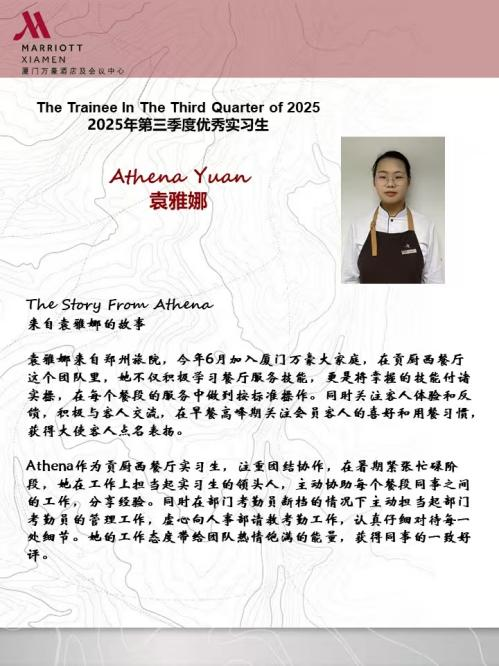 MARRIOTT
XIAMEN
厦门万豪酒店及会议中心
The Trainee In The Third Quarter of 2025
2025年第三季度优秀实习生
Athena Yuan
袁雅娜
The Story From Athena
来自袁雅娜的故事
袁雅娜来自郑州旅院，今年6月加入厦门万豪大家庭，在贡厨西餐厅
这个团队里，她不仅积极学习餐厅服务技能，更是将掌握的技能付诸
实操，在每个餐段的服务中做到按标准操作。同时关注客人体验和反
馈，积极与客人交流，在早餐高峰期关注会员客人的喜好和用餐习惯，
获得大使客人点名表扬。
Athena作为贡厨西餐厅实习生，注重团结协作，在暑期紧张忙碌阶
段，她在工作上担当起实习生的领头人，主动协助每个餐段同事之间
的工作，分享经验。同时在部门考勤员断档的情况下主动担当起部门
考勤员的管理工作，虚心向人事部请教考勤工作，认真仔细对待每一
处细节。她的工作态度带给团队热情饱满的能量，获得同事的一致好
评。